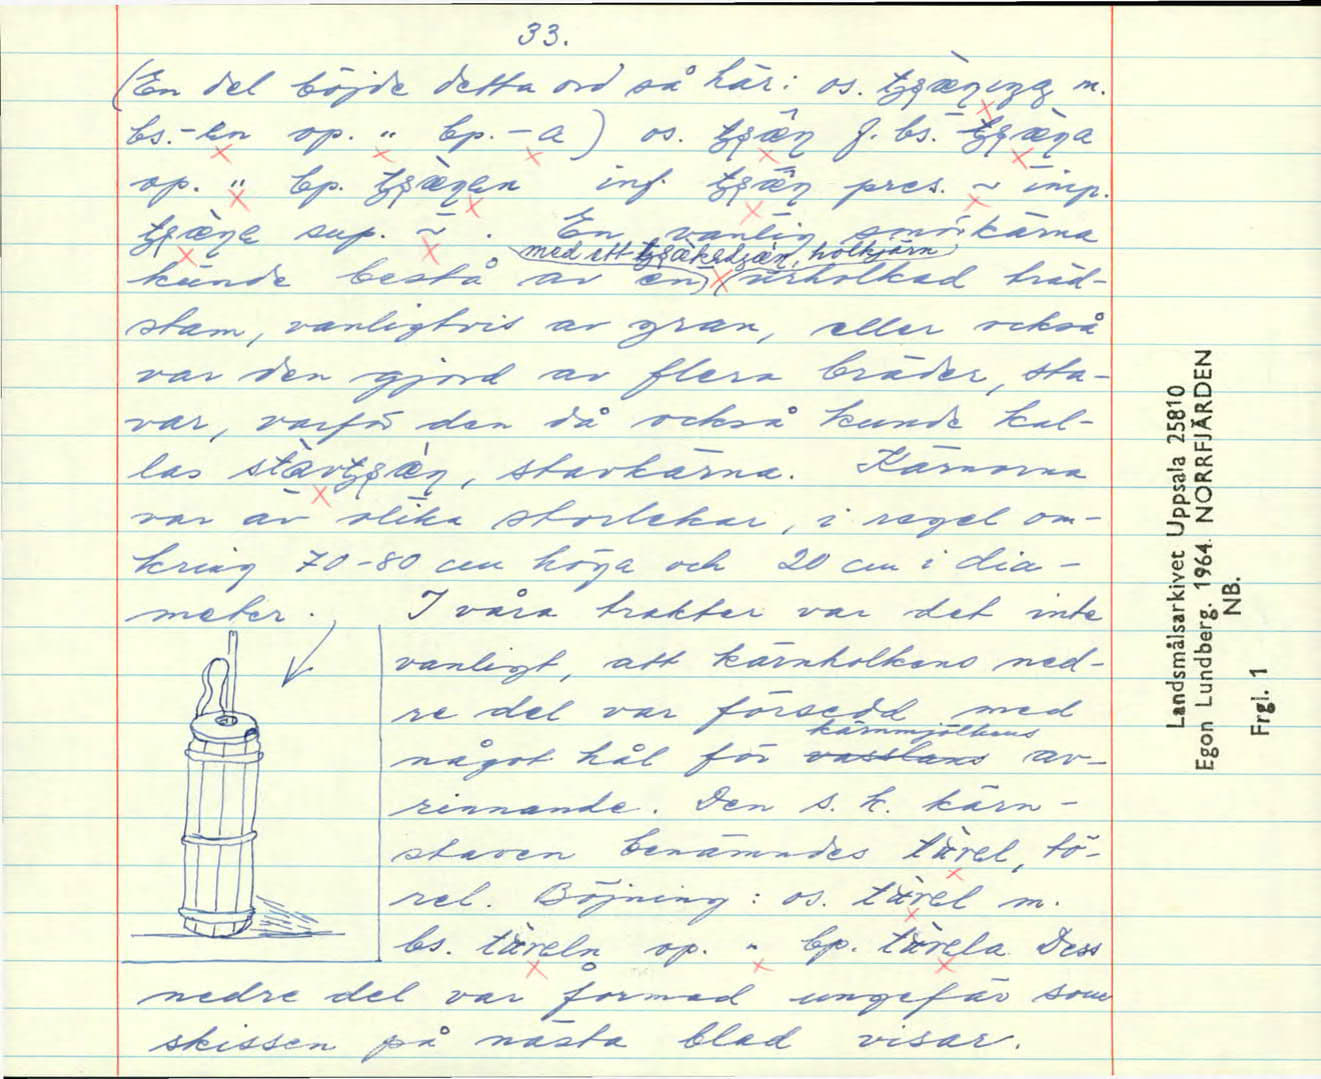 33.
(En del böjde detta ord så här: os. m.
bs. -en op. " bp. -a) os. f. bs.
op. " bp. inf. pres. ~ imp.
sup. ~. En vanlig smörkärna
med ett holkjärn
kunde bestå av en urholkad träd-
stam, vanligtvis av gran, eller också
var den gjord av flera bräder, sta-
var, varför den då också kunde kal-
las stavkärna. Kärnorna
var av olika storlekar, i regel om-
kring 70-80 cm höga och 20 cm i dia-
meter. I våra trakter var det inte
vanligt, att kärnholkens ned-
re del var försedd med
kärnmjölkens
något hål för vasslans av-
rinnande. Den s. k. kärn-
staven benämndes tö-
rel. Böjning: os. m.
bs. op. " bp. Dess
nedre del var formad ungefär som
skissen på nästa blad visar.
Landsmålsarkivet Uppsala 25810
Egon Lundberg. 1964. NORRFJÄRDEN
NB.
Frgl. 1